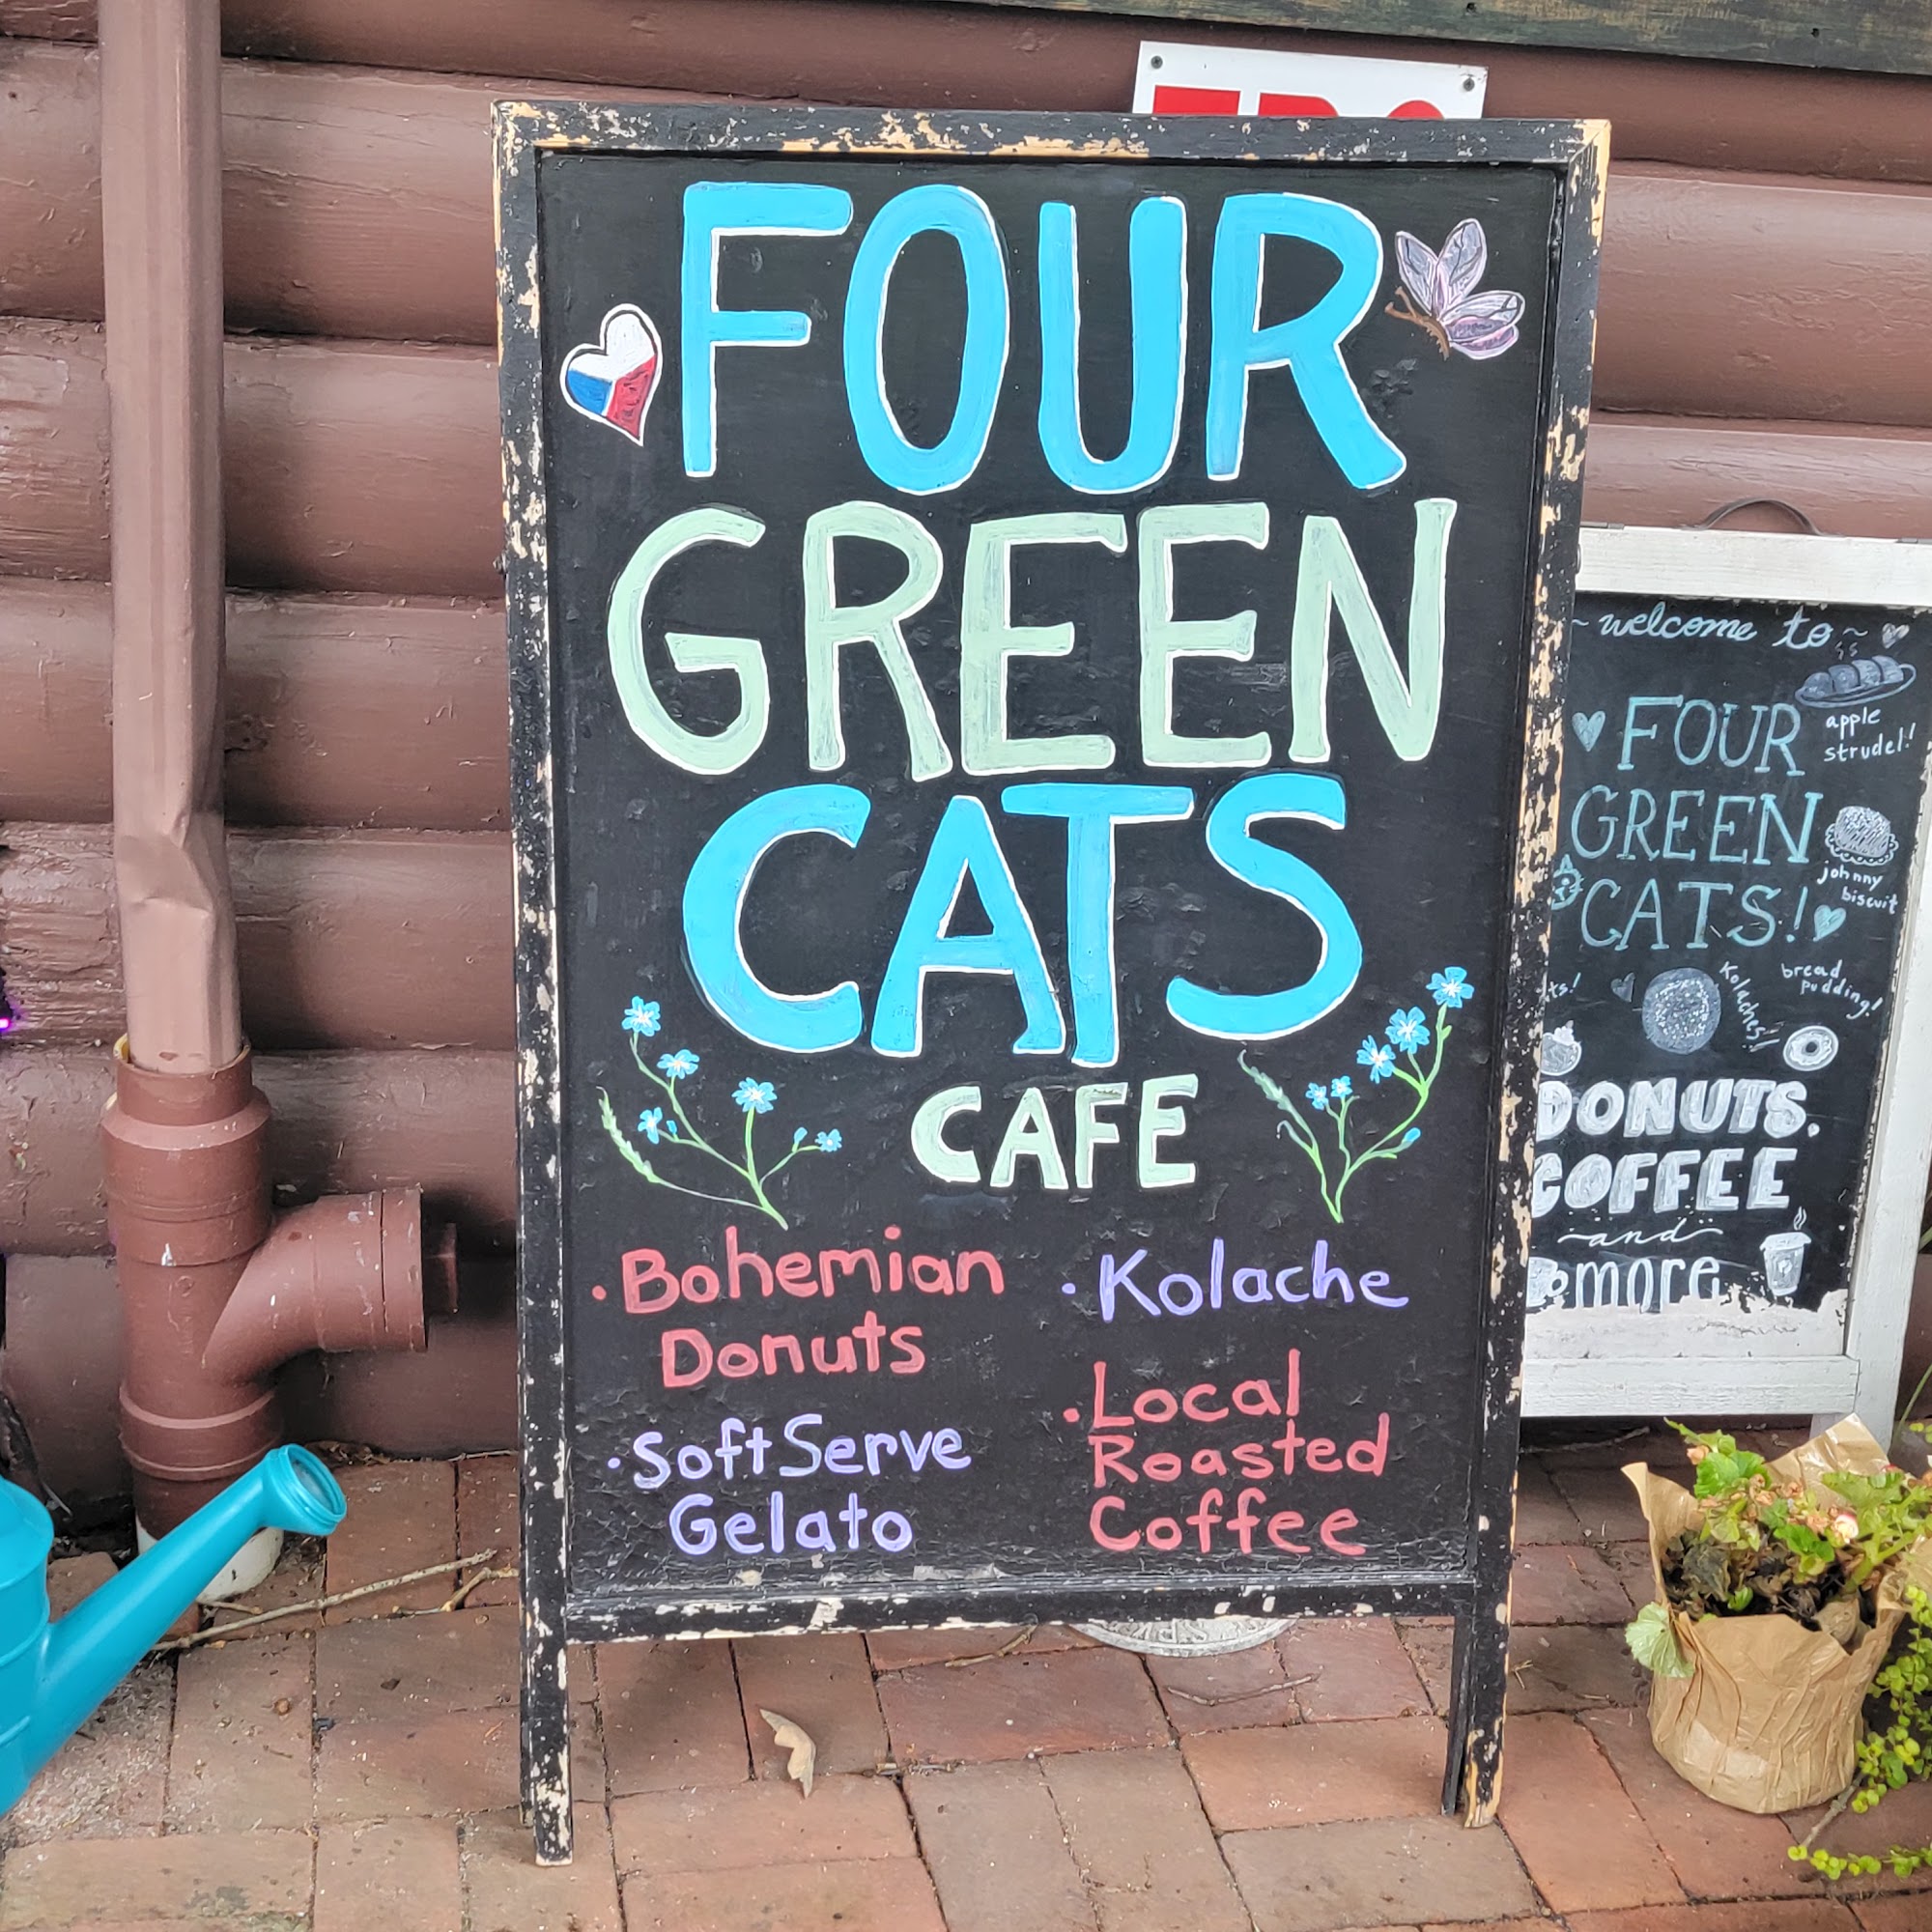 FOUR
GREEN
CATS
CAFE
• Bohemian
Donuts
• Soft Serve
Gelato
• Kolache
• Local
Roasted
Coffee
~ welcome to ~
FOUR
GREEN
CATS!
apple
strudel!
johnny
biscuit
Kolaches!
bread
pudding!
DONUTS,
COFFEE
~and~
more